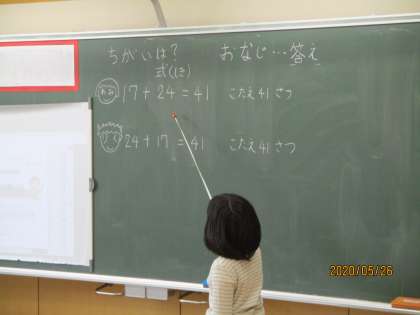 ちがいは? おなじ…答え
式(しき)
17+24=41 こたえ 41 さつ
24+17=41 こたえ 41 さつ
2020/05/26